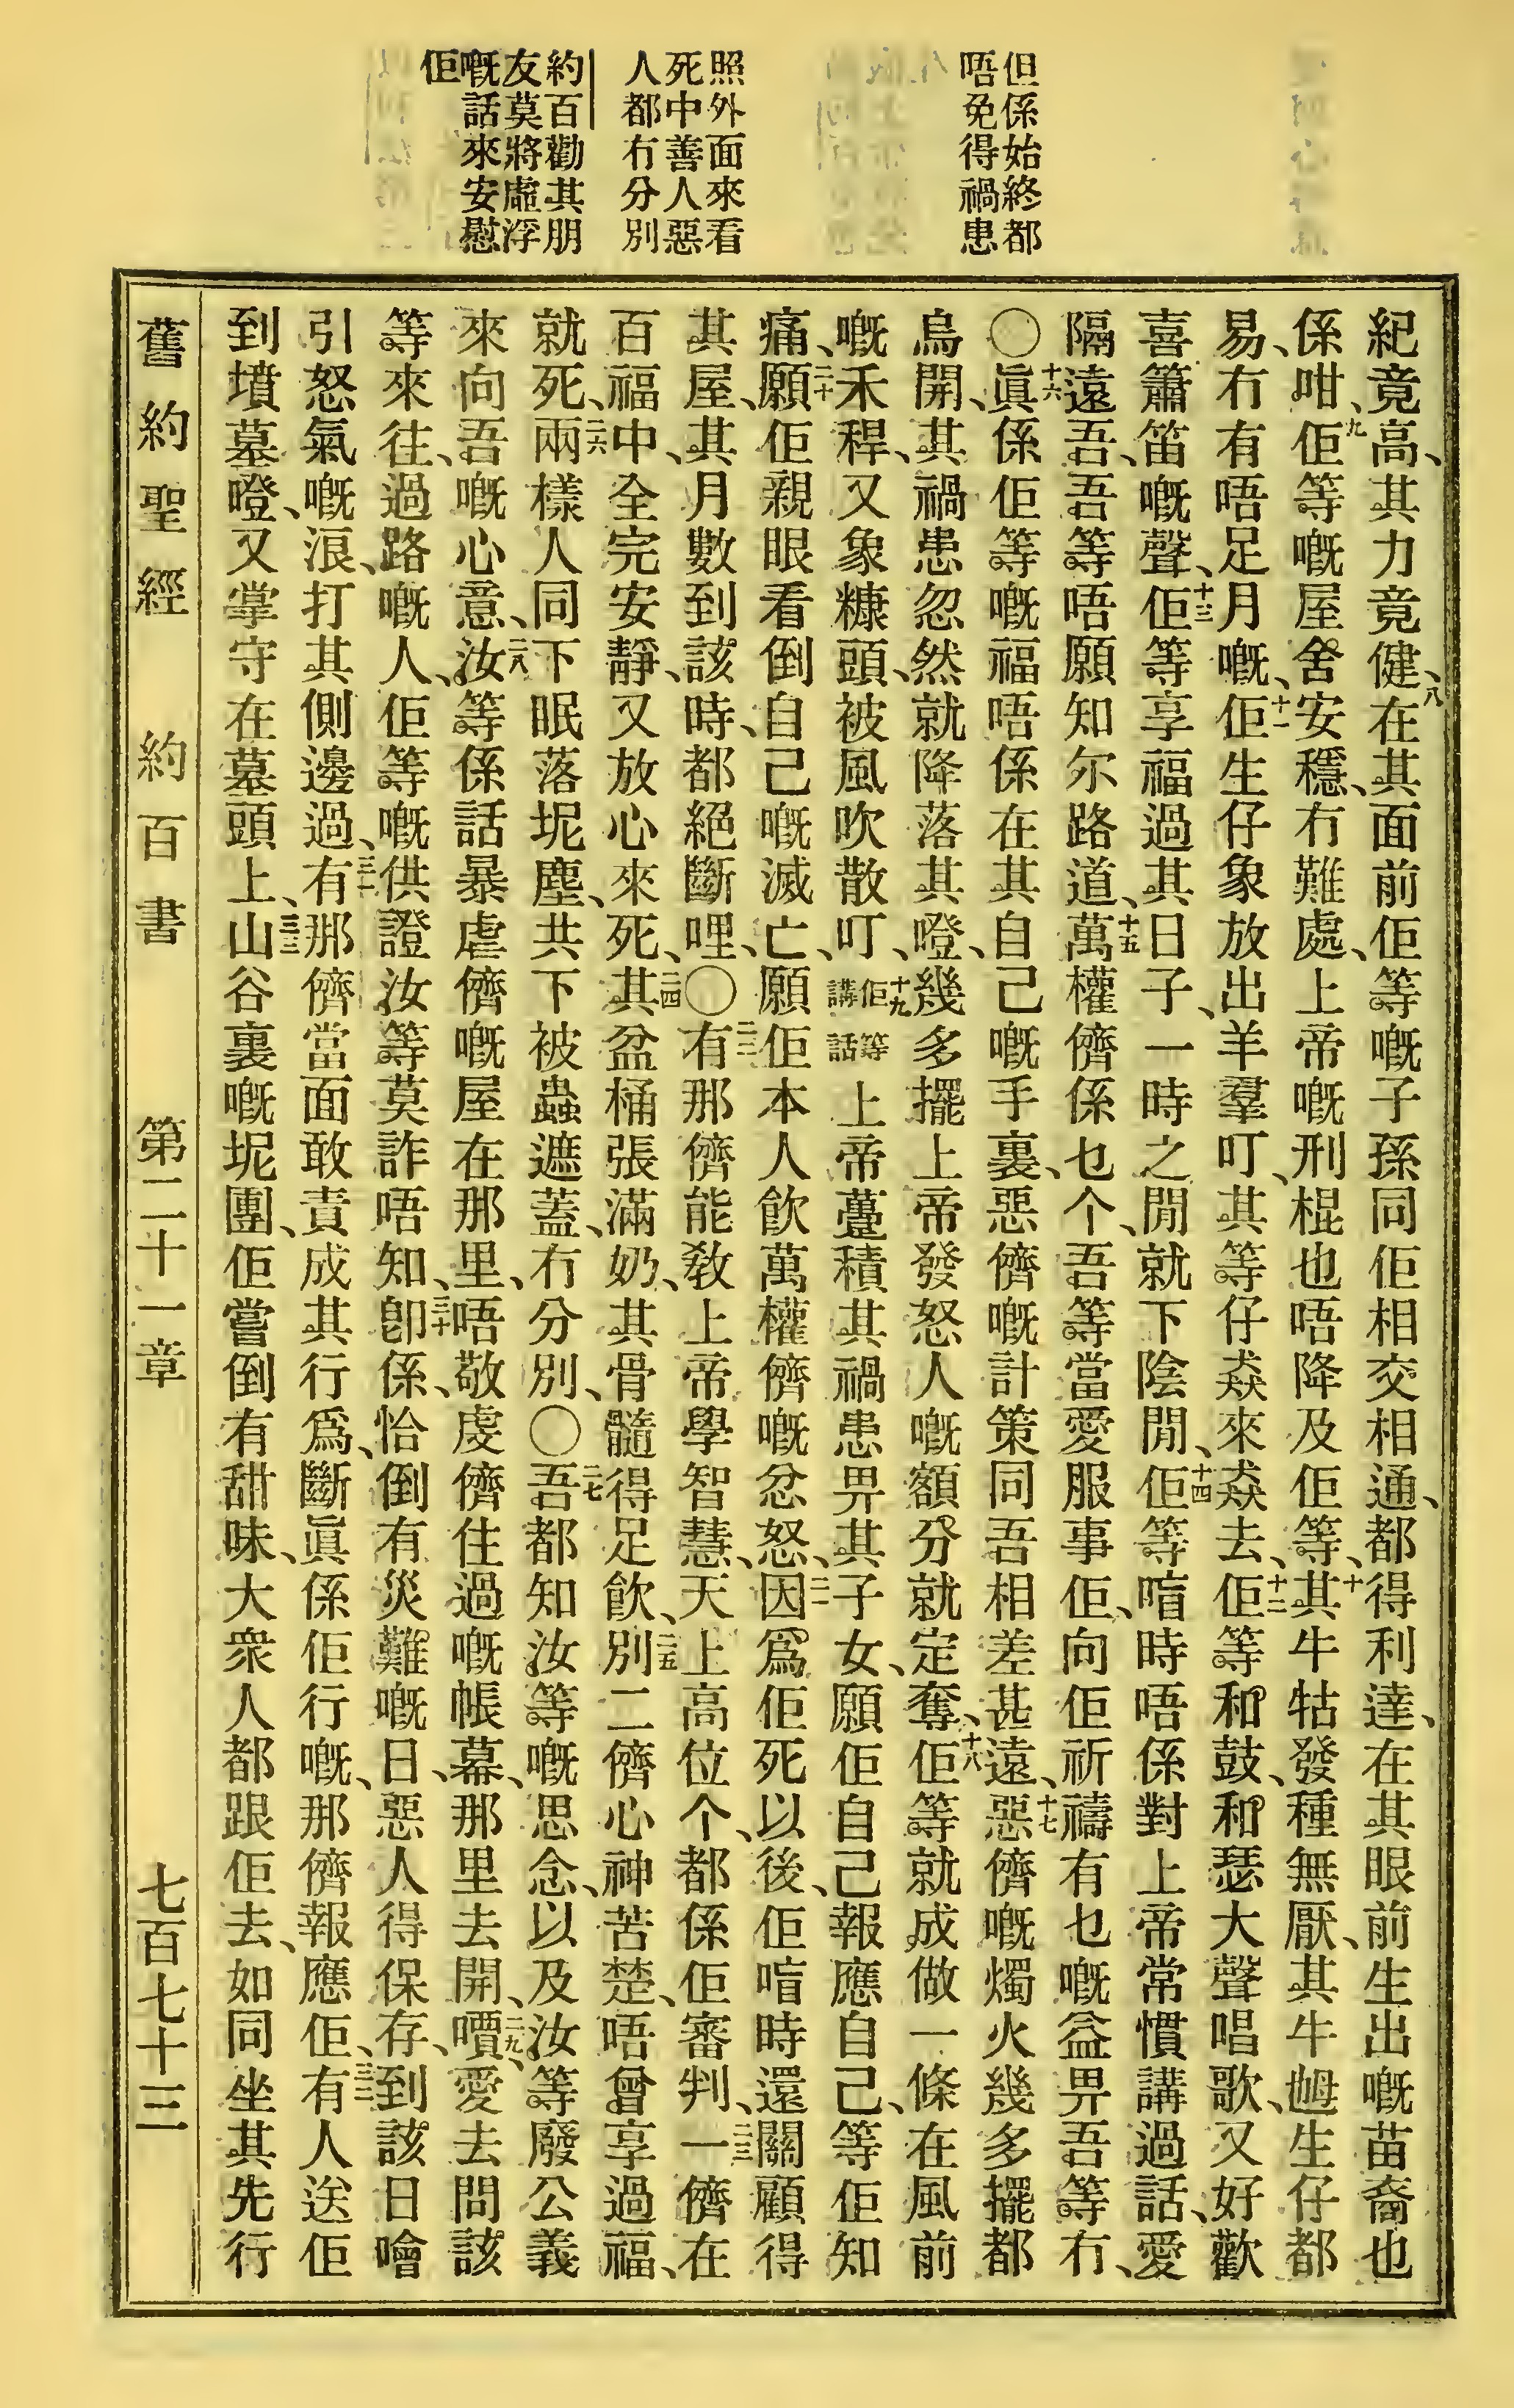 但係始終都
唔免得禍患
照外面來看
死中善人惡
人都冇分別
約百勸其朋
友莫將虛浮
嘅話來安慰
佢
紀竟高、其力竟健、八在其面前佢等嘅子孫同佢相交相通、都得利達、在其眼前生出嘅苗裔也
係咁、九佢等嘅屋舍安穩、冇難處、上帝嘅刑棍也唔降及佢等、十其牛牯發種無厭、其牛乸生仔都
易、冇有唔足月嘅、十一佢生仔象放出羊羣叮、其等仔猋來猋去、十二佢等和鼓、和瑟大聲唱歌、又好歡
喜簫笛嘅聲、十三佢等享福過其日子、一時之閒就下陰閒、十四佢等喑時唔係對 上帝常慣講過話、愛
隔遠吾、吾等唔願知尔路道、十五萬權儕係乜个、吾等當愛服事佢、向佢祈禱有乜嘅益畀吾等冇、
〇十六眞係佢等嘅福唔係在其自己嘅手裏、惡儕嘅計策同吾相差甚遠、十七惡儕嘅燭火幾多擺都
烏開、其禍患忽然就降落其噔、幾多擺上帝發怒人嘅額分就定奪、十八佢等就成做一條在風前
嘅禾稈、又象糠頭、被風吹散叮、十九佢等講話 上帝躉積其禍患畀其子女、願佢自己報應自己、等佢知
痛、二十願佢親眼看倒自己嘅滅亡、願佢本人飲萬權儕嘅忿怒、二一因爲佢死以後、佢喑時還關顧得
其屋、其月數到該時、都絕斷哩、〇二二有那儕能教 上帝學智慧、天上高位个、都係佢審判、二三一儕在
百福中、全完安靜、又放心來死、二四其盆桶張滿奶、其骨髓得足飲、二五別二儕心神苦楚、唔曾享過福、
就死、二六兩樣人同下眠落坭塵、共下被蟲遮蓋、冇分別、〇二七吾都知汝等嘅思念、以及汝等廢公義
來向吾嘅心意、二八汝等係話暴虐儕嘅屋在那里、唔敬虔儕住過嘅帳幕、那里去開、二九嘪、愛去問該
等來往、過路嘅人、佢等嘅供證汝等莫詐唔知、三十卽係、恰倒有災難嘅日、惡人得保存、到該日噲
引怒氣嘅浪、打其側邊過、三一有那儕當面敢責成其行爲、斷眞係佢行嘅、那儕報應佢、三二有人送佢
到墳墓噔、又掌守在墓頭上、三三山谷裏嘅坭團、佢嘗倒有甜味、大衆人都跟佢去、如同坐其先行
舊約聖經 約百書 第二十一章 七百七十三